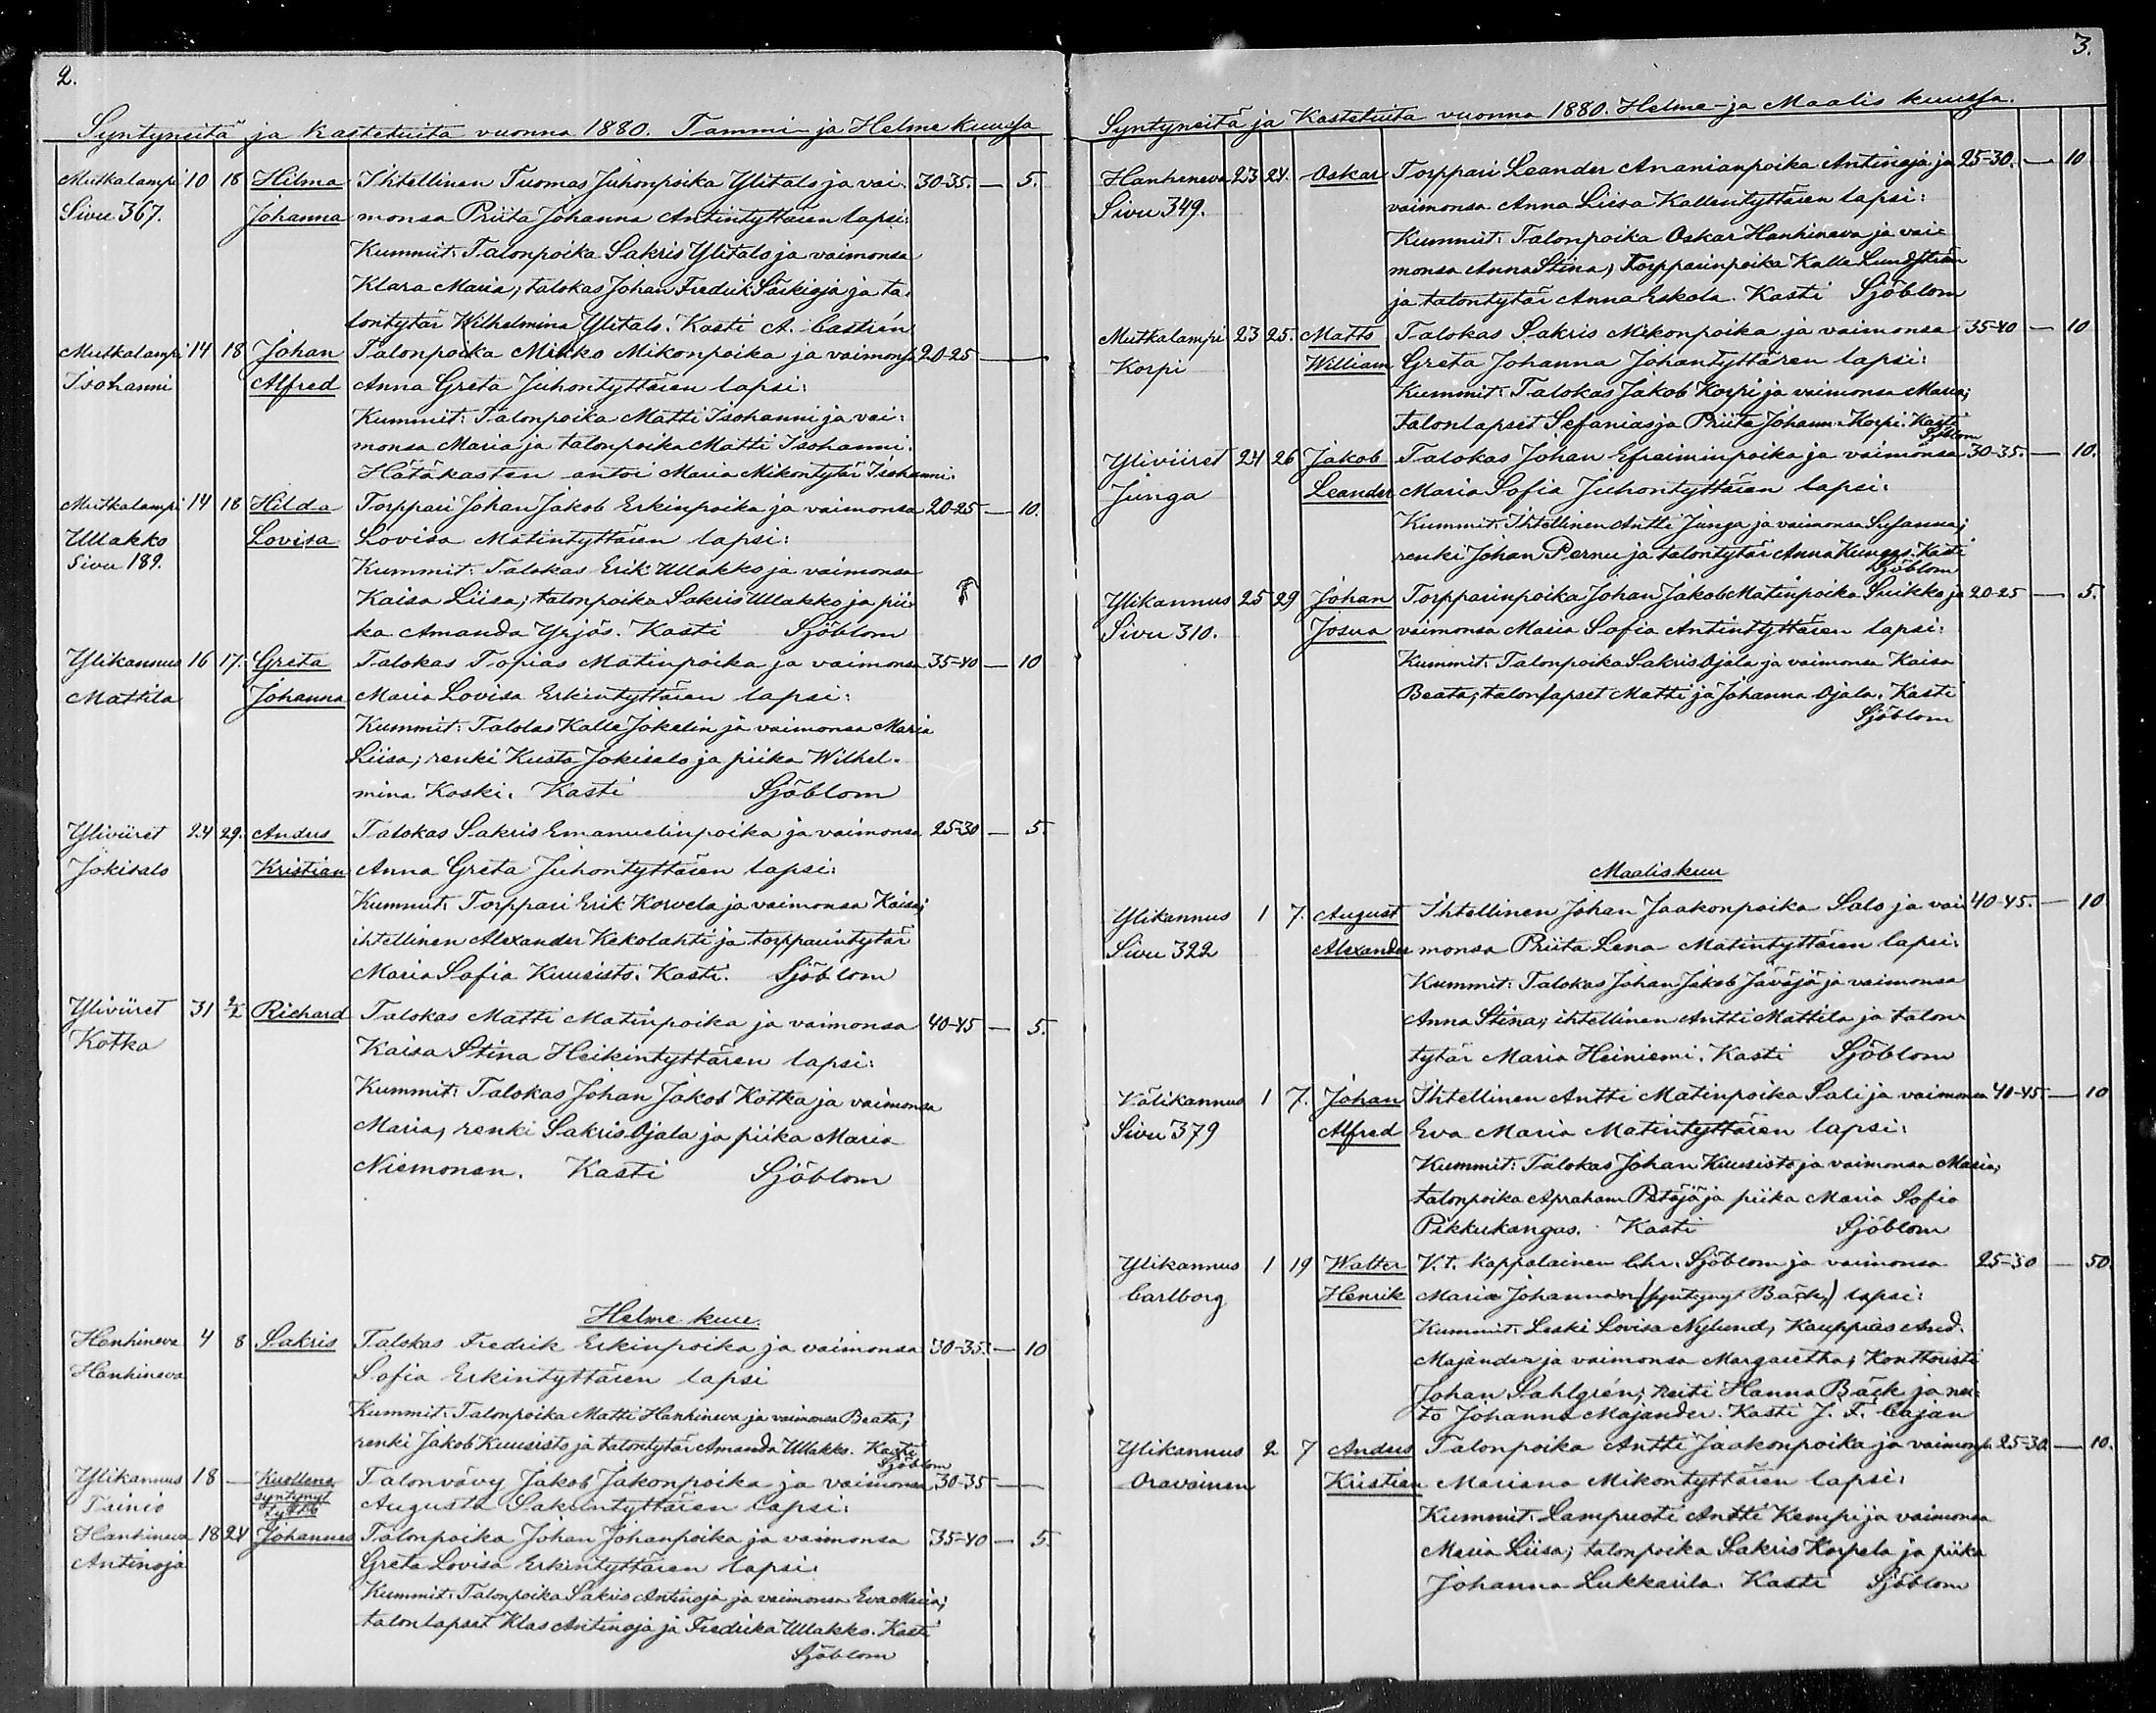 2.
Syntyneitä ja Kastetuita vuonna 1880. Tammi- ja Helme kuussa
Mutkalampi 10 18 Hilma Ihtellinen Tuomas Juhonpoika Ylitalo ja vai- 30-35. — 5.
Sivu 367. Johanna monsa Priita Johanna Antintyttären lapsi:
Kummit: Talonpoika Sakris Ylitalo ja vaimonsa
Klara Maria, talokas Johan Fredrik Särkioja ja ta-
lontytär Wilhelmina Ylitalo. Kasti A. Castrén
Mutkalampi 14 18 Johan Talonpoika Mikko Mikonpoika ja vaimonsa 20-25 —
Isohanni Alfred Anna Greta Juhontyttären lapsi:
Kummit: Talonpoika Matti Isohanni ja vai-
monsa Maria ja talonpoika Matti Isohanni.
Hätäkasten antoi Maria Mikontytär Isohanni.
Mutkalampi 14 18 Hilda Torppari Johan Jakob Erkinpoika ja vaimonsa 20-25 — 10.
Ullakko Lovisa Lovisa Matintyttären lapsi:
Sivu 189.
Kummit: Talokas Erik Ullakko ja vaimonsa
Kaisa Liisa; talonpoika Sakris Ullakko ja pii-
ka Amanda Yrjös. Kasti Sjöblom
Ylikannus 16 17. Greta Talokas Topias Matinpoika ja vaimonsa 35-40 — 10
Mattila Johanna Maria Lovisa Erkintyttären lapsi:
Kummit: Talolas Kalle Jokelin ja vaimonsa Maria
Liisa; renki Kusta Jokisalo ja piika Wilhel-
mina Koski. Kasti Sjöblom
Yliviiret 24 29. Andus Talokas Sakris Emanuelinpoika ja vaimonsa 25-30 — 5.
Jokisalo Kristian Anna Greta Juhontyttären lapsi:
Kummit: Torppari Erik Korvela ja vaimonsa Kaisa;
ihtellinen Alexander Kekolahti ja torpparintytär
Maria Sofia Kuusisto. Kasti. Sjöblom
Yliviiret 31 2/2 Richard Talokas Matti Matinpoika ja vaimonsa 40-45 — 5.
Kotka Kaisa Stina Heikintyttären lapsi:
Kummit: Talokas Johan Jakob Kotka ja vaimonsa
Maria, renki Sakris Ojala ja piika Maria
Niemonen. Kasti Sjöblom
Helme kuu
Hanhineva 4 8 Sakris Talokas Fredrik Erkinpoika ja vaimonsa 30-35. — 10
Hanhineva Sofia Erkintyttären lapsi
Kummit: Talonpoika Matti Hanhineva ja vaimonsa Beata;
renki Jakob Kuusisto ja talontytär Amanda Ullakko. Kasti
Sjöblom
Ylikannus 18 — Kuollena Talonvävy Jakob Jakonpoika ja vaimonsa 30-35 —
Tainio syntynyt tyttö Augusta Sakrintyttären lapsi:
Hanhineva 18 24 Johannes Talonpoika Johan Johanpoika ja vaimonsa 35-40 — 5.
Antinoja Greta Lovisa Erkintyttären lapsi:
Kummit: Talonpoika Sakris Antinoja ja vaimonsa Eva Maria;
talonlapset Klas Antinoja ja Fredrika Ullakko. Kasti
Sjöblom
3.
Syntyneitä ja Kastetuita vuonna 1880. Helme- ja Maalis kuussa.
Hanhineva 23 24. Oskar Torppari Leander Ananianpoika Antinoja ja 25-30. — 10
Sivu 349. vaimonsa Anna Liisa Kallentyttären lapsi:
Kummit: Talonpoika Oskar Hanhineva ja vai-
monsa Anna Stina, Torpparinpoika Kalle Lundström
ja talontytär Anna Eskola. Kasti Sjöblom
Mutkalampi 23 25. Matts Talokas Sakris Mikonpoika ja vaimonsa 35-40 — 10
Korpi William Greta Johanna Johantyttären lapsi:
Kummit: Talokas Jakob Korpi ja vaimonsa Maria;
talonlapset Sefanias ja Priita Johanna Korpi. Kasti
Sjöblom
Yliviiret 24 26 Jakob Talokas Johan Efraiminpoika ja vaimonsa 30-35. — 10.
Junga Leander Maria Sofia Juhontyttären lapsi:
Kummit: Ihtellinen Antti Junga ja vaimonsa Susanna;
renki Johan Pernu ja talontytär Anna Kungas. Kasti
Sjöblom
Ylikannus 25 29 Johan Torpparinpoika Johan Jakob Matinpoika Suikko ja 20-25 — 5.
Sivu 310. Josua vaimonsa Maria Sofia Antintyttären lapsi:
Kummit: Talonpoika Sakris Ojala ja vaimonsa Kaisa
Beata; talonlapset Matti ja Johanna Ojala. Kasti
Sjöblom
Maaliskuu
Ylikannus 1 7. August Ihtellinen Johan Jaakonpoika Salo ja vai- 40-45. — 10.
Sivu 322 Alexander monsa Priita Lena Matintyttären lapsi:
Kummit: Talokas Johan Jakob Jäväjä ja vaimonsa
Anna Stina; ihtellinen Antti Mattila ja talon-
tytär Maria Heiniemi. Kasti Sjöblom
Välikannus 1 7. Johan Ihtellinen Antti Matinpoika Sali ja vaimonsa 40-45 — 10
Sivu 379 Alfred Eva Maria Matintyttären lapsi:
Kummit: Talokas Johan Kuusisto ja vaimonsa Maria,
talonpoika Apraham Petäjä ja piika Maria Sofia
Pikkukangas. Kasti Sjöblom
Ylikannus 1 19 Walter V.t. kappalainen Chr. Sjöblom ja vaimonsa 25-30 — 50.
Carlborg Henrik Maria Johannan (syntynyt Bäck) lapsi:
Kummit: Leski Lovisa Nylund, Kauppias And.
Majander ja vaimonsa Margaretha; Konttoristi
Johan Sahlgrén; neiti Hanna Bäck ja nei-
to Johanna Majander. Kasti J. F. Cajan
Ylikannus 2 7 Andus Talonpoika Antti Jaakonpoika ja vaimonsa 25-30. — 10.
Oravainen Kristian Mariana Mikontyttären lapsi:
Kummit: Lampuoti Antti Kempi ja vaimonsa
Maria Liisa; talonpoika Sakris Korpela ja piika
Johanna Lukkarila. Kasti Sjöblom